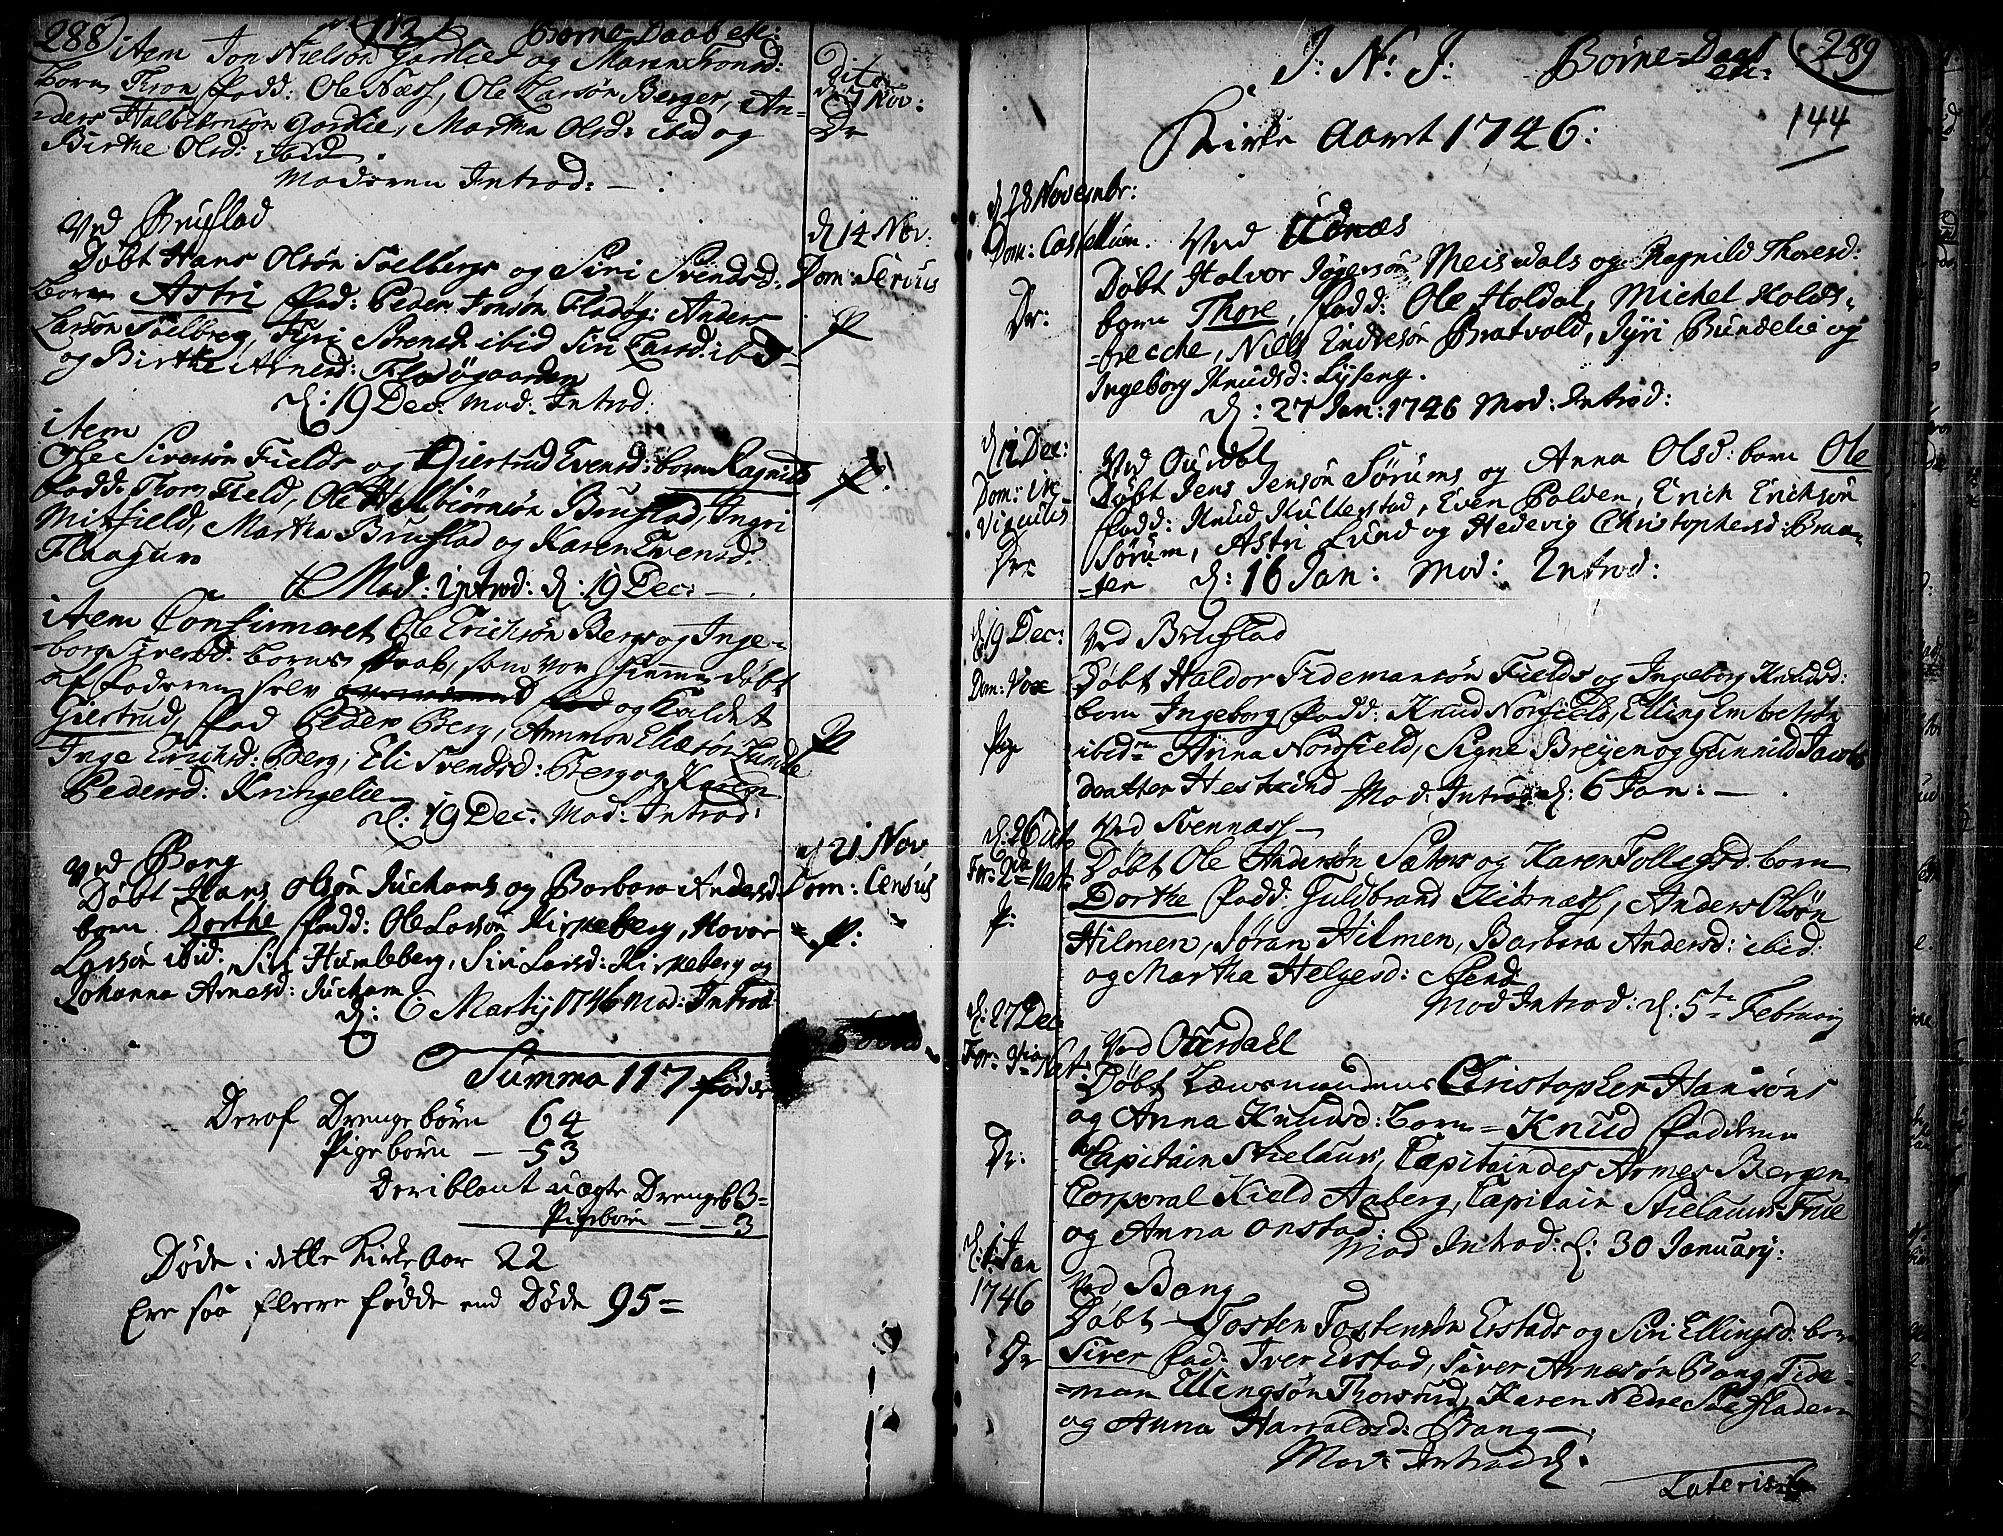 288
Børne-Daab etc:
item Jon Nielsøn Gorlies og Maren Trond:
born Tron fadd: Ole Næss, Ole Larsøn Berger, An-
=ders Halbiørnsøn Gorlie, Martha Olsd: ibid og
Birthe Olsd: ibid.
Moderen Introd: —
dito
d: 7 Nov:
Dr
Ved Bruflad
Døbt Hans Olsøn Soelbergs og Siri Svendsd:
born Astri fad: Peder Jonsøn Fladøg: Anders
Larsøn Soelberg, Jyri Sørensd ibid Siri Larsd: ibid
og Birthe Arnesd: Fladøgaarden
d: 19 Dec: Mod: Introd:
d 14 Nov:
Dom: Servus
P
item
Ole Siversøn Fields og Giertrud Evensd: born Ragnild
fadd: Thor Field, Ole Halbiørnsøn Bruflad, Ingri
Mitfield, Martha Bruflad og Karen Evensd:
Flaagun
Mod: introd: d: 19 Dec: —
P.
item Confirmeret Ole Erichsøn Bergs og Inge-
-borg Siversd: borns Daab, som var hiemme døbt
af faderen selv og kaldet
Giertrud, fad Peder Berg, Ammon Eliæsøn Lunde
Inge Erichsd: Berg, Eli Svendsd: Berg og Karen
Pedersd: Kringelie
d: 19 Dec: Mod: Introd:
P
Ved Bang
Døbt Hans Olsøn Juchams og Barbara Andersd:
born Dorthe fadd: Ole Larsøn Kirkeberg, Hover
Larsøn ibid: Siri Humleberg, Siri Larsd: Kirkeberg og
Johanna Arnesd: Jucham
d: 6 Martij 1746 Mod: Introd:
d 21 Nov
Dom: Census
P:
Summa 117 fødde
Deraf Drengebørn 64
Pigebørn — 53
Deriblant uægte Drengeb 3=
Pigebørn — 3
Døde i dette Kirke aar 22
Ere saa fleere fødde end Døde 95=
J: N: J: Børne=Daab
etc:
289
144
Kirke Aaret 1746:
d 28 Novembr:
Dom: Castellum. Ved Udnæs
Døbt Halvor Jøgersøn Meisdals og Ragnild Thoresd:
Dr: born Thore, fadd: Ole Holdal, Michel Holds-
=brecche, Niels Endresøn Bratvold, Jyri Bundelie og
Ingeborg Knudsd: Lyseng.
d: 27 Jan: 1746 Mod: Introd:
d 12 Dec:
Dom: in
Vinculis
Dr:
Ved Ourdal
Døbt Jens Jensøn Sørums og Anna Olsd: born Ole
fadd: Knud Hullerstad, Even Polden, Erich Erichsøn
Sørum, Astri Lund og Hedevig Christophersd: Braa-
=ten d: 16 Jan: Mod: Introd:
d 19 Dec:
Dom: Vox
Pige
Ved Bruflad
Døbt Haldor Tidemansøn Fields og Ingeborg Knudsd:
born Ingeborg fadd: Knud Norfield, Elling Embretsøn
ibid Anna Norfield, Signe Breyen og Gunnild Jacobs
daatter Hestkind Mod: Introd: d: 6 Jan: —
d: 26 dito
Fer: 2da Nat:
P:
Ved Svennæss —
Døbt Ole Andersøn Sæters og Karen Tollegsd: born
Dorthe fadd: Guldbrand Kirknæss, Anders Olsøn
Hilmen, Jøran Hilmen, Barbara Andersd: ibid:
og Martha Helgesd: Stend
Mod Introd: d: 5te Februarij
d: 27 Dec
Fer: 3tia Nat:
Dr:
Ved Ourdahl
Døbt Lænsmandens Christopher Hansøns
og Anna Knudsd: born = Knud fadderne
Capitain Stielaus, Capitain des Armes Bergen
Corporal Kield Aaberg, Capitain Stielaus Frue
og Anna Onstad:
Mod Introd: d: 30 January:
d: 1 Jan
1746
Dr
Ved Bang
Døbt Tosten Tostensøn Erstads og Siri Ellingsd: born
Siver fad: Iver Erstad, Siver Arnesøn Bang, Tide-
=man Ellingsøn Thorsrud, Karen Nedre Sæfladen
og Anna Harraldsd: Bang —
Mod: Introd d.
Lateris 6